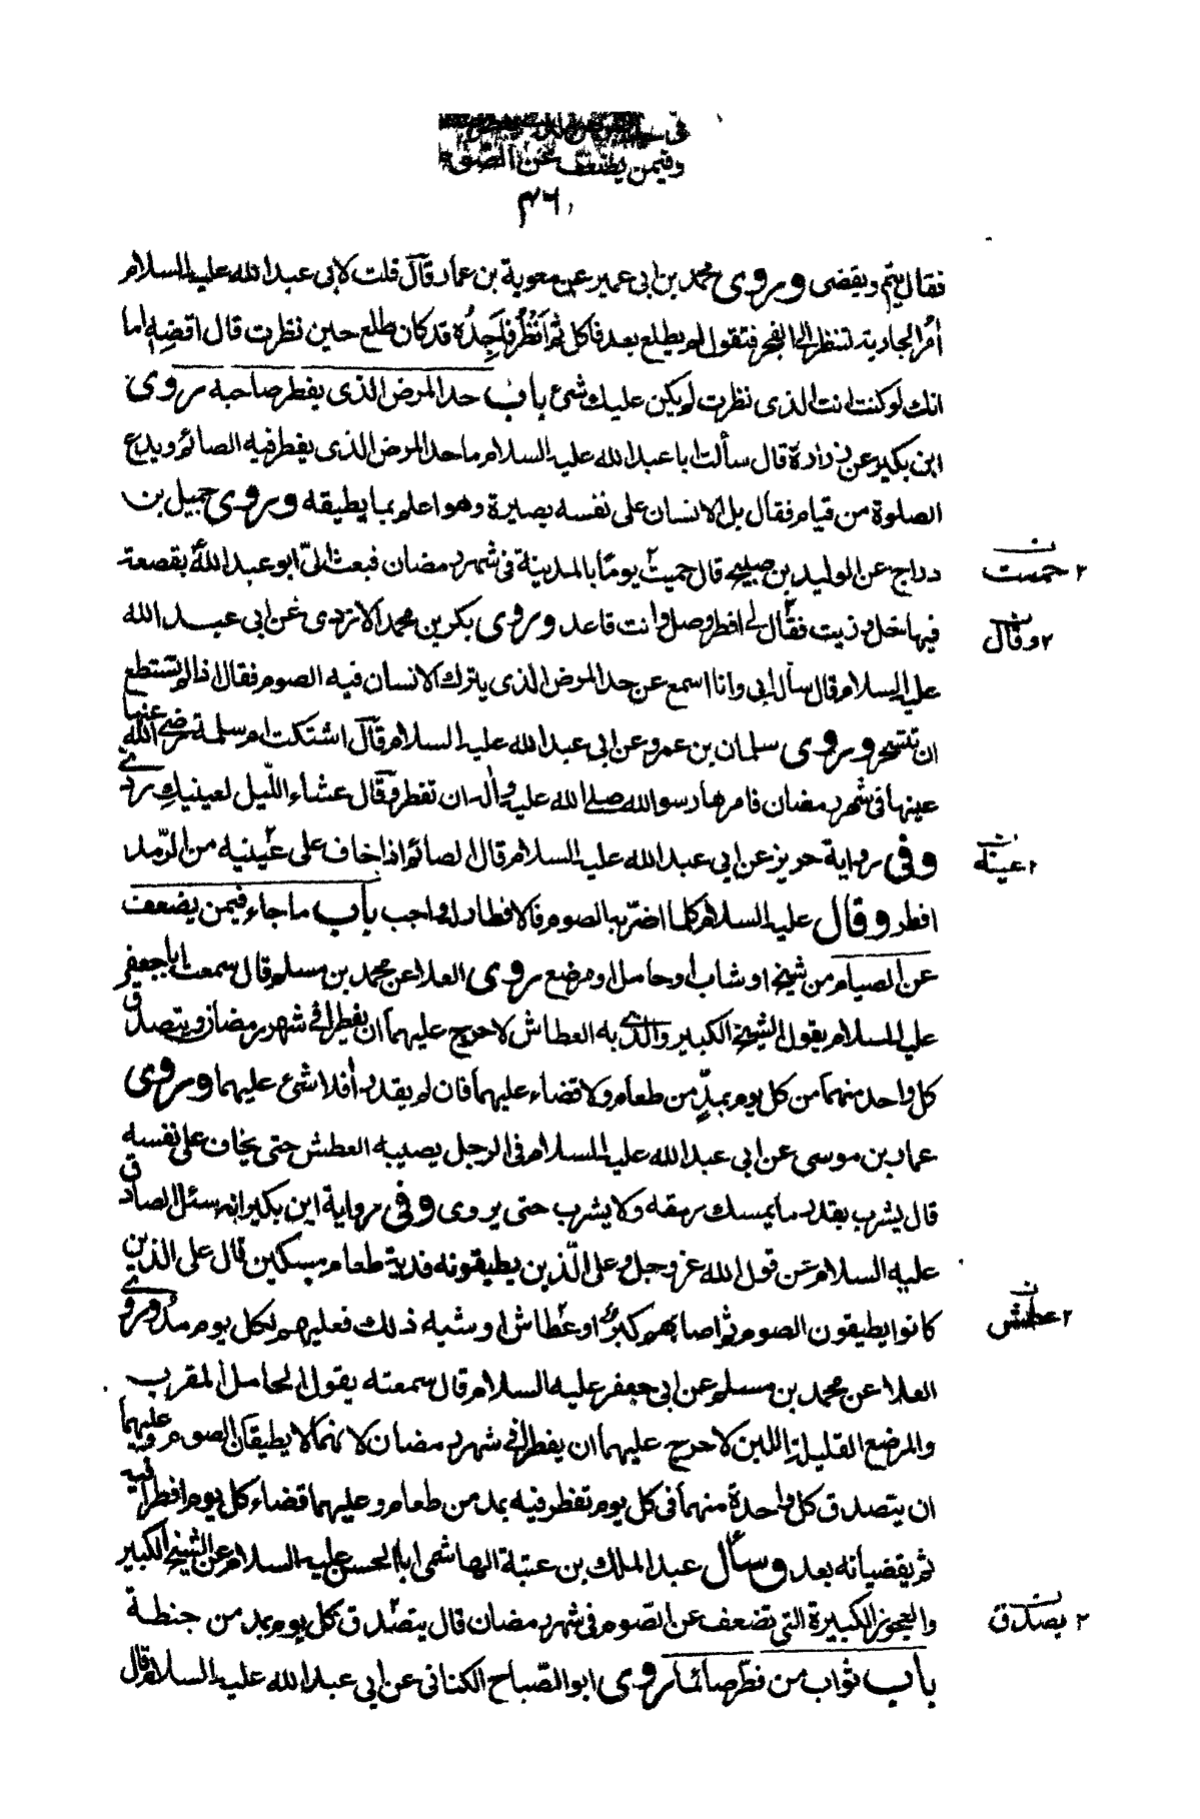 وفيمن يضعف عن الصوم
٤٦٠
فقال يتم ويقضى وروى محمد بن ابى عمير عن معوية بن عمار قال قلت لابى عبد الله عليه السلام
آمر الجارية لتنظر الى الفجر فتقول لم يطلع بعد فآكل ثم انظر فاجده قد كان طلع حين نظرت قال اقضه اما
انك لو كنت انت الذى نظرت لم يكن عليك شئ باب حد المرض الذى يفطر صاحبه روى
ابن بكير عن زرارة قال سألت ابا عبد الله عليه السلام ما حد المرض الذى يفطر فيه الصائم ويدع
الصلوة من قيام فقال بل الانسان على نفسه بصيرة وهو اعلم بما يطيقه وروى جميل بن
دراج عن الوليد بن صبيح قال حميت٢ يوما بالمدينة فى شهر رمضان فبعث الىّ ابو عبد اللهؑ بقصعة
٢ حممت ن
فيها خل وزيت فقال٢ لى افطر وصل وانت قاعد وروى بكر بن محمد الازدى عن ابى عبد الله
٢ وقال ن
عليه السلام قال سأله ابى وانا اسمع عن حد المرض الذى يترك الانسان فيه الصوم فقال اذا لم تستطع
ان تتسحر وروى سلمان بن عمرو عن ابى عبد الله عليه السلام قال اشتكت ام سلمة رضى الله عنها
عينها فى شهر رمضان فامرها رسول الله صلى الله عليه وآله ان تفطر وقال عشاء الليل لعينيك ردى
وفى رواية حريز عن ابى عبد الله عليه السلام قال الصائم اذا خاف على عينيه٢ من الرّمد
٢ عينه ن
افطر وقال عليه السلام كلما اضرّ به الصوم فالافطار له واجب باب ما جاء فيمن يضعف
عن الصيام من شيخ او شاب او حامل او مرضع روى العلا عن محمد بن مسلم قال سمعت ابا جعفر
عليه السلام يقول الشيخ الكبير والذى به العطاش لا حرج عليهما ان يفطرا فى شهر رمضان ويتصدق
كل واحد منهما من كل يوم بمدّ من طعام ولا قضاء عليهما فان لم يقدرا فلا شئ عليهما وروى
عمار بن موسى عن ابى عبد الله عليه السلام فى الرجل يصيبه العطش حتى يخاف على نفسه
قال يشرب بقدر ما يمسك رمقه ولا يشرب حتى يروى وفى رواية ابن بكير انه سئل الصادق
عليه السلام عن قول الله عز وجل وعلى الّذين يطيقونه فدية طعام مسكين قال على الذين
كانوا يطيقون الصوم ثم اصابهم كبر او عطاش٢ او شبه ذلك فعليهم لكل يوم مدّ وروى
٢ عطش ن
العلا عن محمد بن مسلم عن ابى جعفر عليه السلام قال سمعته يقول الحامل المقرب
والمرضع القليلة اللبن لا حرج عليهما ان يفطرا فى شهر رمضان لانهما لا يطيقان الصوم وعليهما
ان يتصدق كل واحدة منهما فى كل يوم تفطر فيه بمد من طعام وعليهما قضاء كل يوم افطرا فيه
ثم يقضيانه بعد وسأل عبد الملك بن عتبة الهاشمى ابا الحسن عليه السلام عن الشيخ الكبير
والعجوز الكبيرة التى تضعف عن الصوم فى شهر رمضان قال يتصدق٢ كل يوم بمد من حنطة
٢ يصدق ن
باب ثواب من فطّر صائما روى ابو الصّباح الكنانى عن ابى عبد الله عليه السلام قال